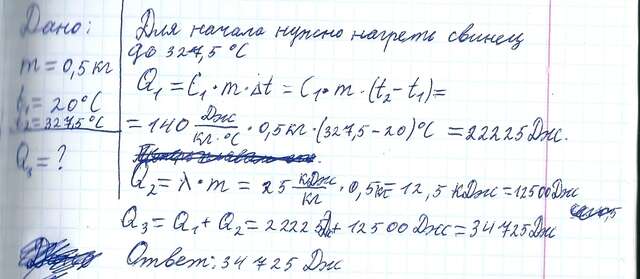 Дано:
m = 0,5 кг
t₁ = 20°C
t₂ = 327,5°C
Q₃ = ?
Для начала нужно нагреть свинец
до 327,5°C
Q₁ = C₁ · m · Δt = C₁ · m · (t₂ - t₁) =
= 140 Дж/кг·°C · 0,5 кг · (327,5 - 20)°C = 22225 Дж.
Q₂ = λ · m = 25 кДж/кг · 0,5 кг = 12,5 кДж = 12500 Дж
Q₃ = Q₁ + Q₂ = 22225 Дж + 12500 Дж = 34725 Дж
Ответ: 34725 Дж